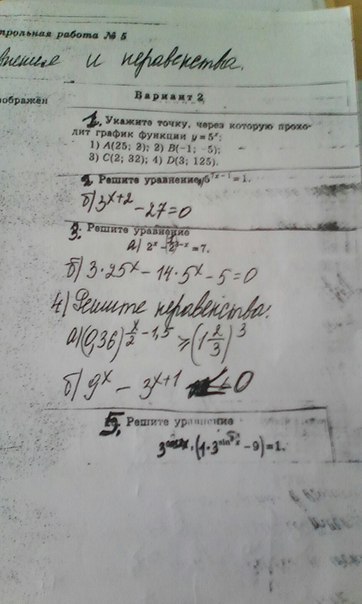 трольная работа № 5
внения и неравенства.
ображён
Вариант 2
1. Укажите точку, через которую прохо-
дит график функции y = 5ˣ:
1) A(25; 2); 2) B(-1; -5);
3) C(2; 32); 4) D(3; 125).
2. Решите уравнение,
б) 3ˣ⁺² - 27 = 0
3. Решите уравнение
а) 2ˣ - 2³⁻ˣ = 7.
б) 3·25ˣ - 14·5ˣ - 5 = 0
4) Решите неравенства:
а) (0,36)^(x/2 - 1,5) ≥ (1 2/3)³
б) 9ˣ - 3ˣ⁺¹ 0
5. Решите уравнение